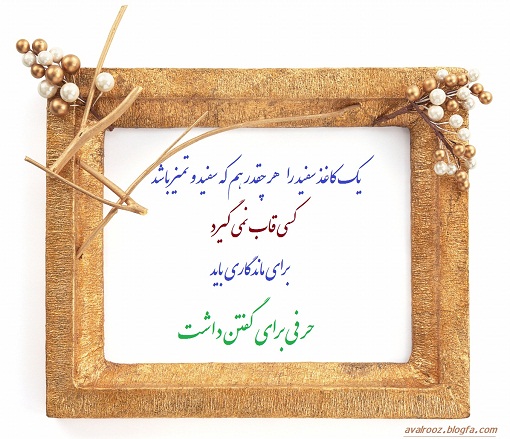 یک کاغذ سفید را هر چقدر هم که سفید و تمیز باشد
کسی قاب نمی گیرد
برای ماندگاری باید
حرفی برای گفتن داشت
avalrooz.blogfa.com